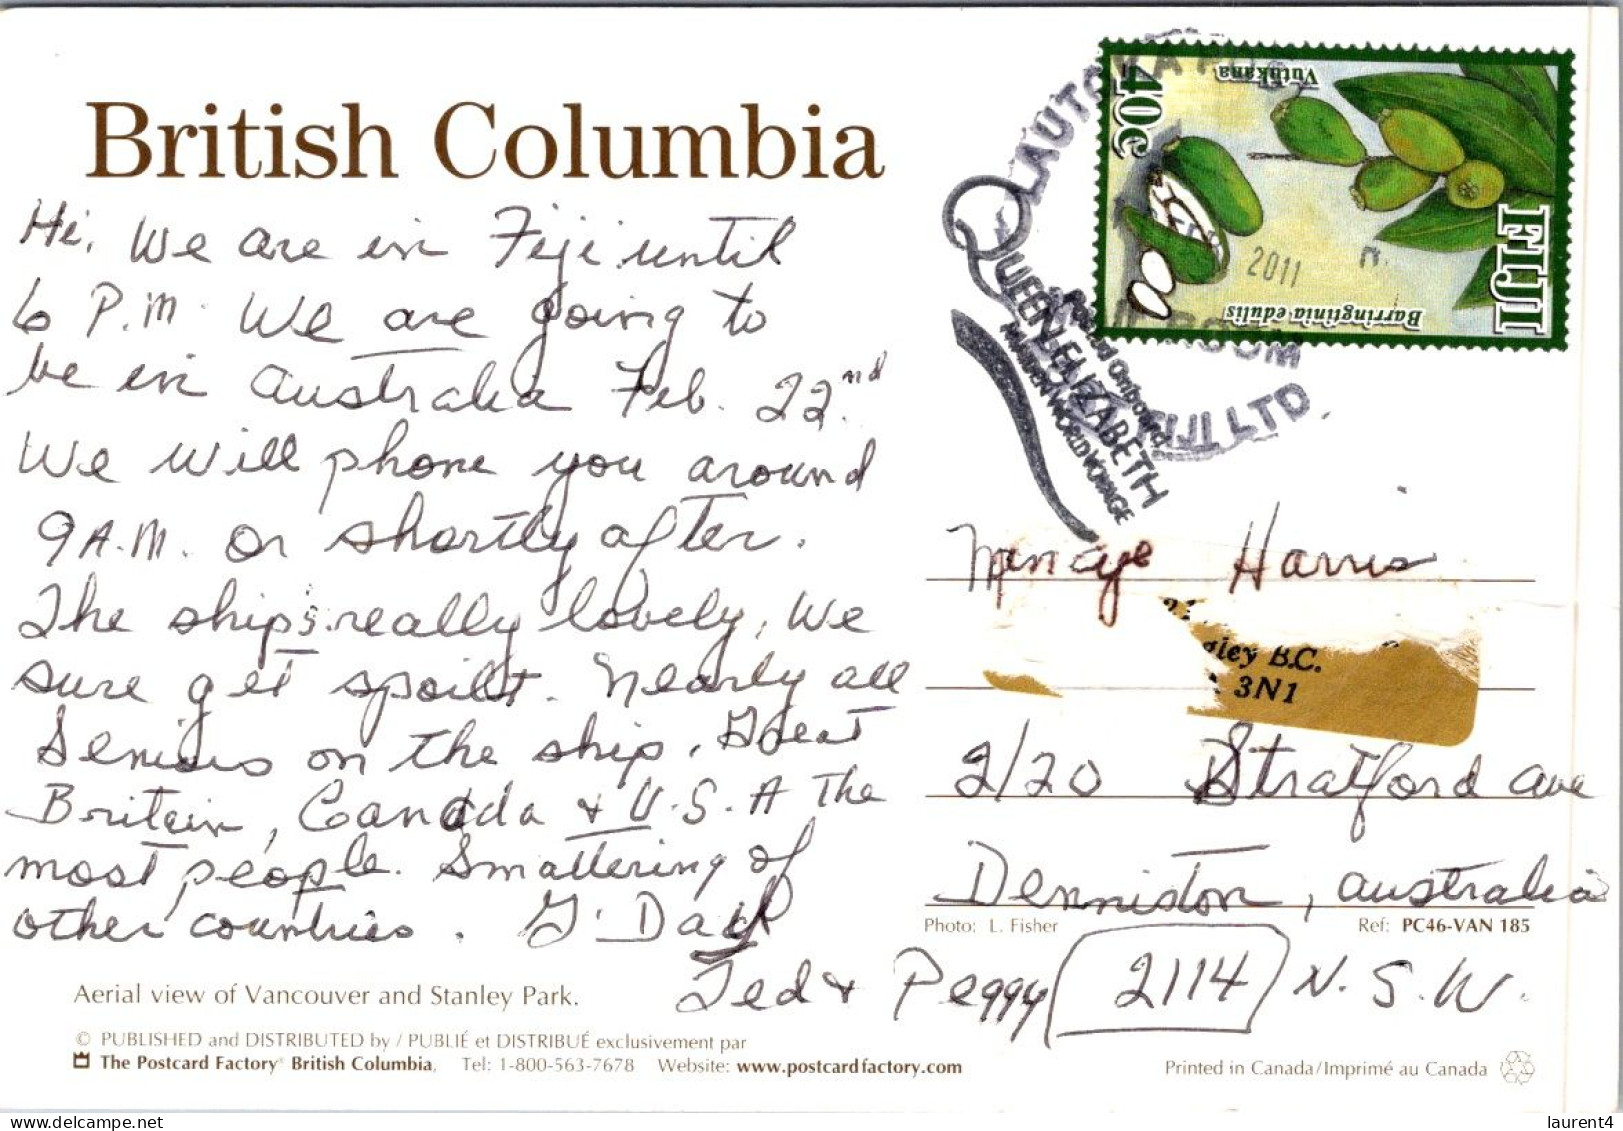 British Columbia
Hi, We are in Fiji until
6 P.M. We are going to
be in Australia Feb. 22nd.
We will phone you around
9 A.M. or shortly after.
The ship's really lovely, We
sure get spoilt. Nearly all
Seniors on the ship. Great
Britain, Canada & U.S.A The
most people. Smattering of
other countries. G'Day
Ted & Peggy
Aerial view of Vancouver and Stanley Park.
© PUBLISHED and DISTRIBUTED by / PUBLIÉ et DISTRIBUÉ exclusivement par
The Postcard Factory® British Columbia, Tel: 1-800-563-7678 Website: www.postcardfactory.com
40c
Vutukana
FIJI
Barringtinia edulis
LAUTOKA
2011
FIJI LTD.
QUEEN ELIZABETH
Posted Onboard
MAIDEN WORLD VOYAGE
Harris
gley B.C.
3N1
2/20 Stratford Ave
Denniston, Australia
Photo: L. Fisher Ref: PC46-VAN 185
2114 N.S.W.
Printed in Canada/Imprimé au Canada
laurent4